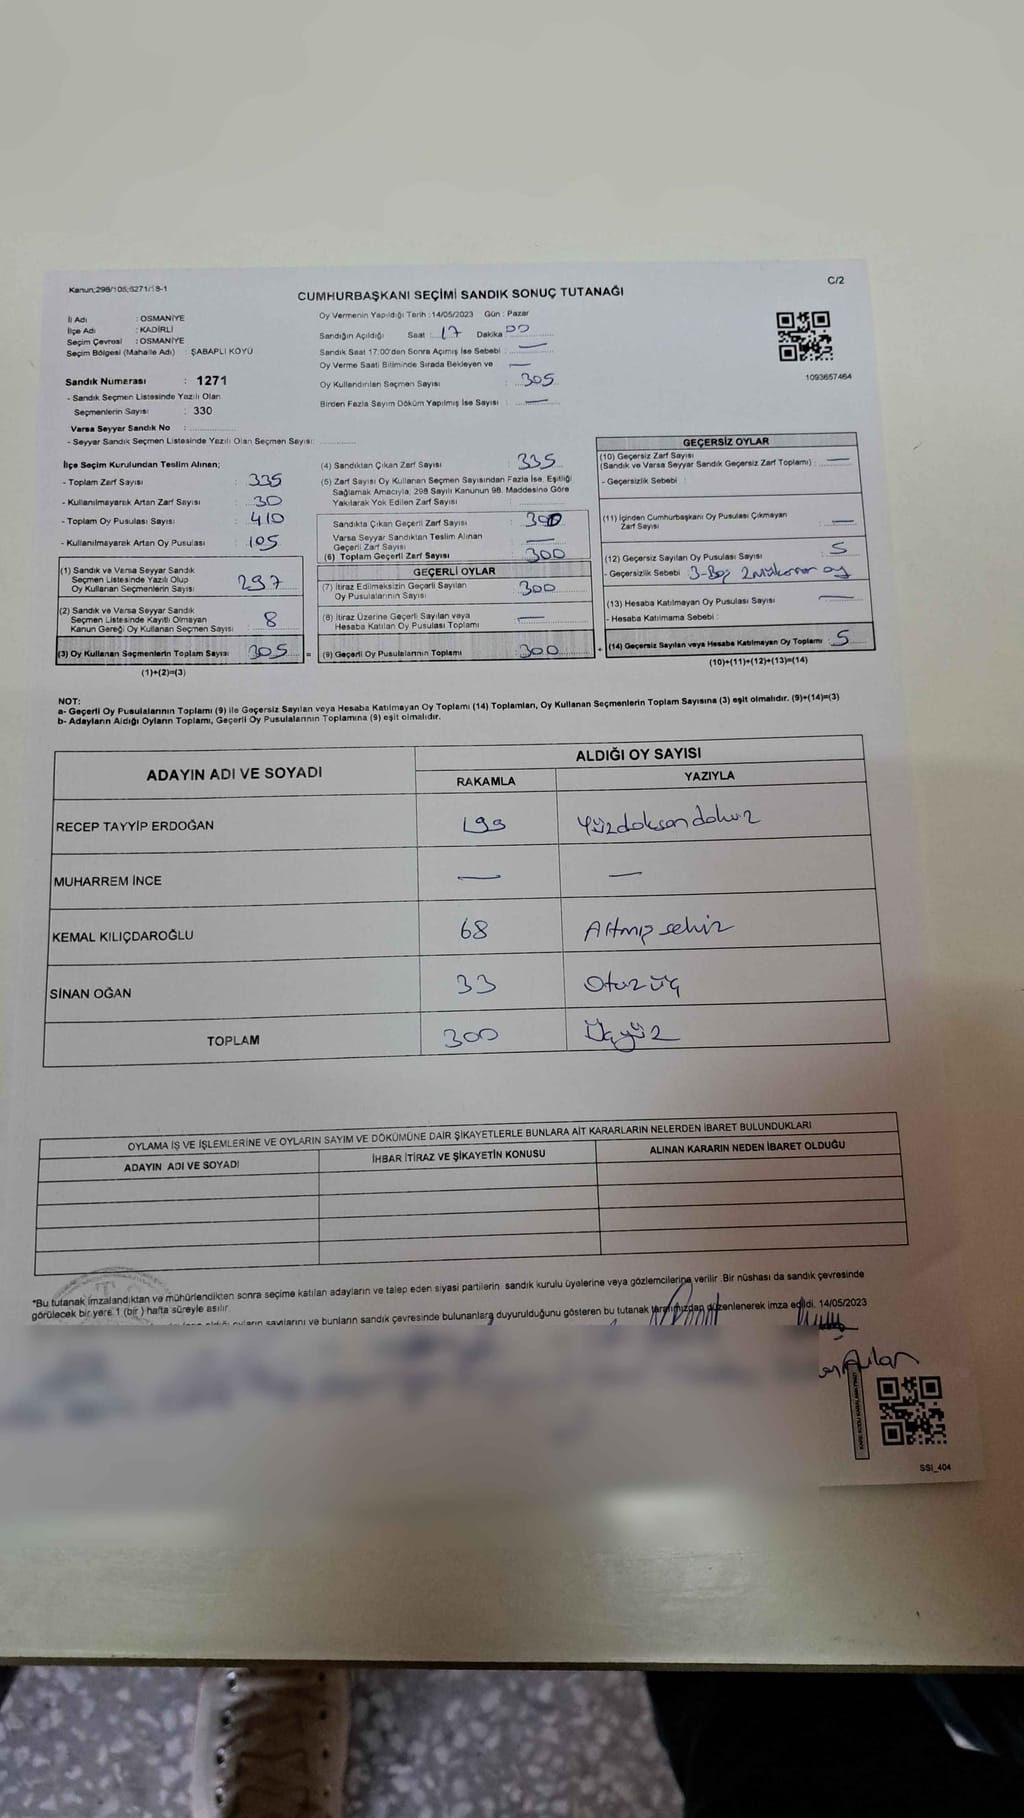 Kanun;298/105;6271/18-1
C/2
CUMHURBAŞKANI SEÇİMİ SANDIK SONUÇ TUTANAĞI
İl Adı : OSMANİYE
İlçe Adı : KADİRLİ
Seçim Çevresi : OSMANİYE
Seçim Bölgesi (Mahalle Adı) : ŞABAPLI KÖYÜ
Sandık Numarası : 1271
- Sandık Seçmen Listesinde Yazılı Olan
Seçmenlerin Sayısı : 330
Varsa Seyyar Sandık No :
- Seyyar Sandık Seçmen Listesinde Yazılı Olan Seçmen Sayısı:
Oy Vermenin Yapıldığı Tarih : 14/05/2023 Gün : Pazar
Sandığın Açıldığı Saat : 17 Dakika 00
Sandık Saat 17.00'den Sonra Açımış İse Sebebi : —
Oy Verme Saati Bitiminde Sırada Bekleyen ve —
Oy Kullandırılan Seçmen Sayısı : 305
Birden Fazla Sayım Döküm Yapılmış İse Sayısı : —
1093657464
İlçe Seçim Kurulundan Teslim Alınan;
- Toplam Zarf Sayısı : 335
- Kullanılmayarak Artan Zarf Sayısı : 30
- Toplam Oy Pusulası Sayısı : 410
- Kullanılmayarak Artan Oy Pusulası : 105
(1) Sandık ve Varsa Seyyar Sandık
Seçmen Listesinde Yazılı Olup
Oy Kullanan Seçmenlerin Sayısı : 297
(2) Sandık ve Varsa Seyyar Sandık
Seçmen Listesinde Kayıtlı Olmayan
Kanun Gereği Oy Kullanan Seçmen Sayısı : 8
(3) Oy Kullanan Seçmenlerin Toplam Sayısı 305 =
(1)+(2)=(3)
(4) Sandıktan Çıkan Zarf Sayısı : 335
(5) Zarf Sayısı Oy Kullanan Seçmen Sayısından Fazla İse, Eşitliği
Sağlamak Amacıyla, 298 Sayılı Kanunun 98. Maddesine Göre
Yakılarak Yok Edilen Zarf Sayısı :
Sandıkta Çıkan Geçerli Zarf Sayısı : 300
Varsa Seyyar Sandıktan Teslim Alınan
Geçerli Zarf Sayısı : —
(6) Toplam Geçerli Zarf Sayısı : 300
GEÇERLİ OYLAR
(7) İtiraz Edilmeksizin Geçerli Sayılan
Oy Pusulalarının Sayısı : 300
(8) İtiraz Üzerine Geçerli Sayılan veya
Hesaba Katılan Oy Pusulası Toplamı : —
(9) Geçerli Oy Pusulalarının Toplamı : 300 +
GEÇERSİZ OYLAR
(10) Geçersiz Zarf Sayısı
(Sandık ve Varsa Seyyar Sandık Geçersiz Zarf Toplamı) : —
- Geçersizlik Sebebi :
(11) İçinden Cumhurbaşkanı Oy Pusulası Çıkmayan
Zarf Sayısı : —
(12) Geçersiz Sayılan Oy Pusulası Sayısı : 5
- Geçersizlik Sebebi 3-Boş 2 mükerrer oy
(13) Hesaba Katılmayan Oy Pusulası Sayısı : —
- Hesaba Katılmama Sebebi :
(14) Geçersiz Sayılan veya Hesaba Katılmayan Oy Toplamı : 5
(10)+(11)+(12)+(13)=(14)
NOT:
a- Geçerli Oy Pusulalarının Toplamı (9) ile Geçersiz Sayılan veya Hesaba Katılmayan Oy Toplamı (14) Toplamları, Oy Kullanan Seçmenlerin Toplam Sayısına (3) eşit olmalıdır. (9)+(14)=(3)
b- Adayların Aldığı Oyların Toplamı, Geçerli Oy Pusulalarının Toplamına (9) eşit olmalıdır.
ADAYIN ADI VE SOYADI
ALDIĞI OY SAYISI
RAKAMLA YAZIYLA
RECEP TAYYİP ERDOĞAN 199 Yüzdoksandokuz
MUHARREM İNCE — —
KEMAL KILIÇDAROĞLU 68 Altmış sekiz
SİNAN OĞAN 33 Otuz üç
TOPLAM 300 Üçyüz
OYLAMA İŞ VE İŞLEMLERİNE VE OYLARIN SAYIM VE DÖKÜMÜNE DAİR ŞİKAYETLERLE BUNLARA AİT KARARLARIN NELERDEN İBARET BULUNDUKLARI
ADAYIN ADI VE SOYADI İHBAR İTİRAZ VE ŞİKAYETİN KONUSU ALINAN KARARIN NEDEN İBARET OLDUĞU
*Bu tutanak imzalandıktan ve mühürlendikten sonra seçime katılan adayların ve talep eden siyasi partilerin sandık kurulu üyelerine veya gözlemcilerine verilir. Bir nüshası da sandık çevresinde
görülecek bir yere 1 (bir) hafta süreyle asılır.
oyların sayılarını ve bunların sandık çevresinde bulunanlara duyurulduğunu gösteren bu tutanak tarafımızdan düzenlenerek imza edildi. 14/05/2023
SSI_404